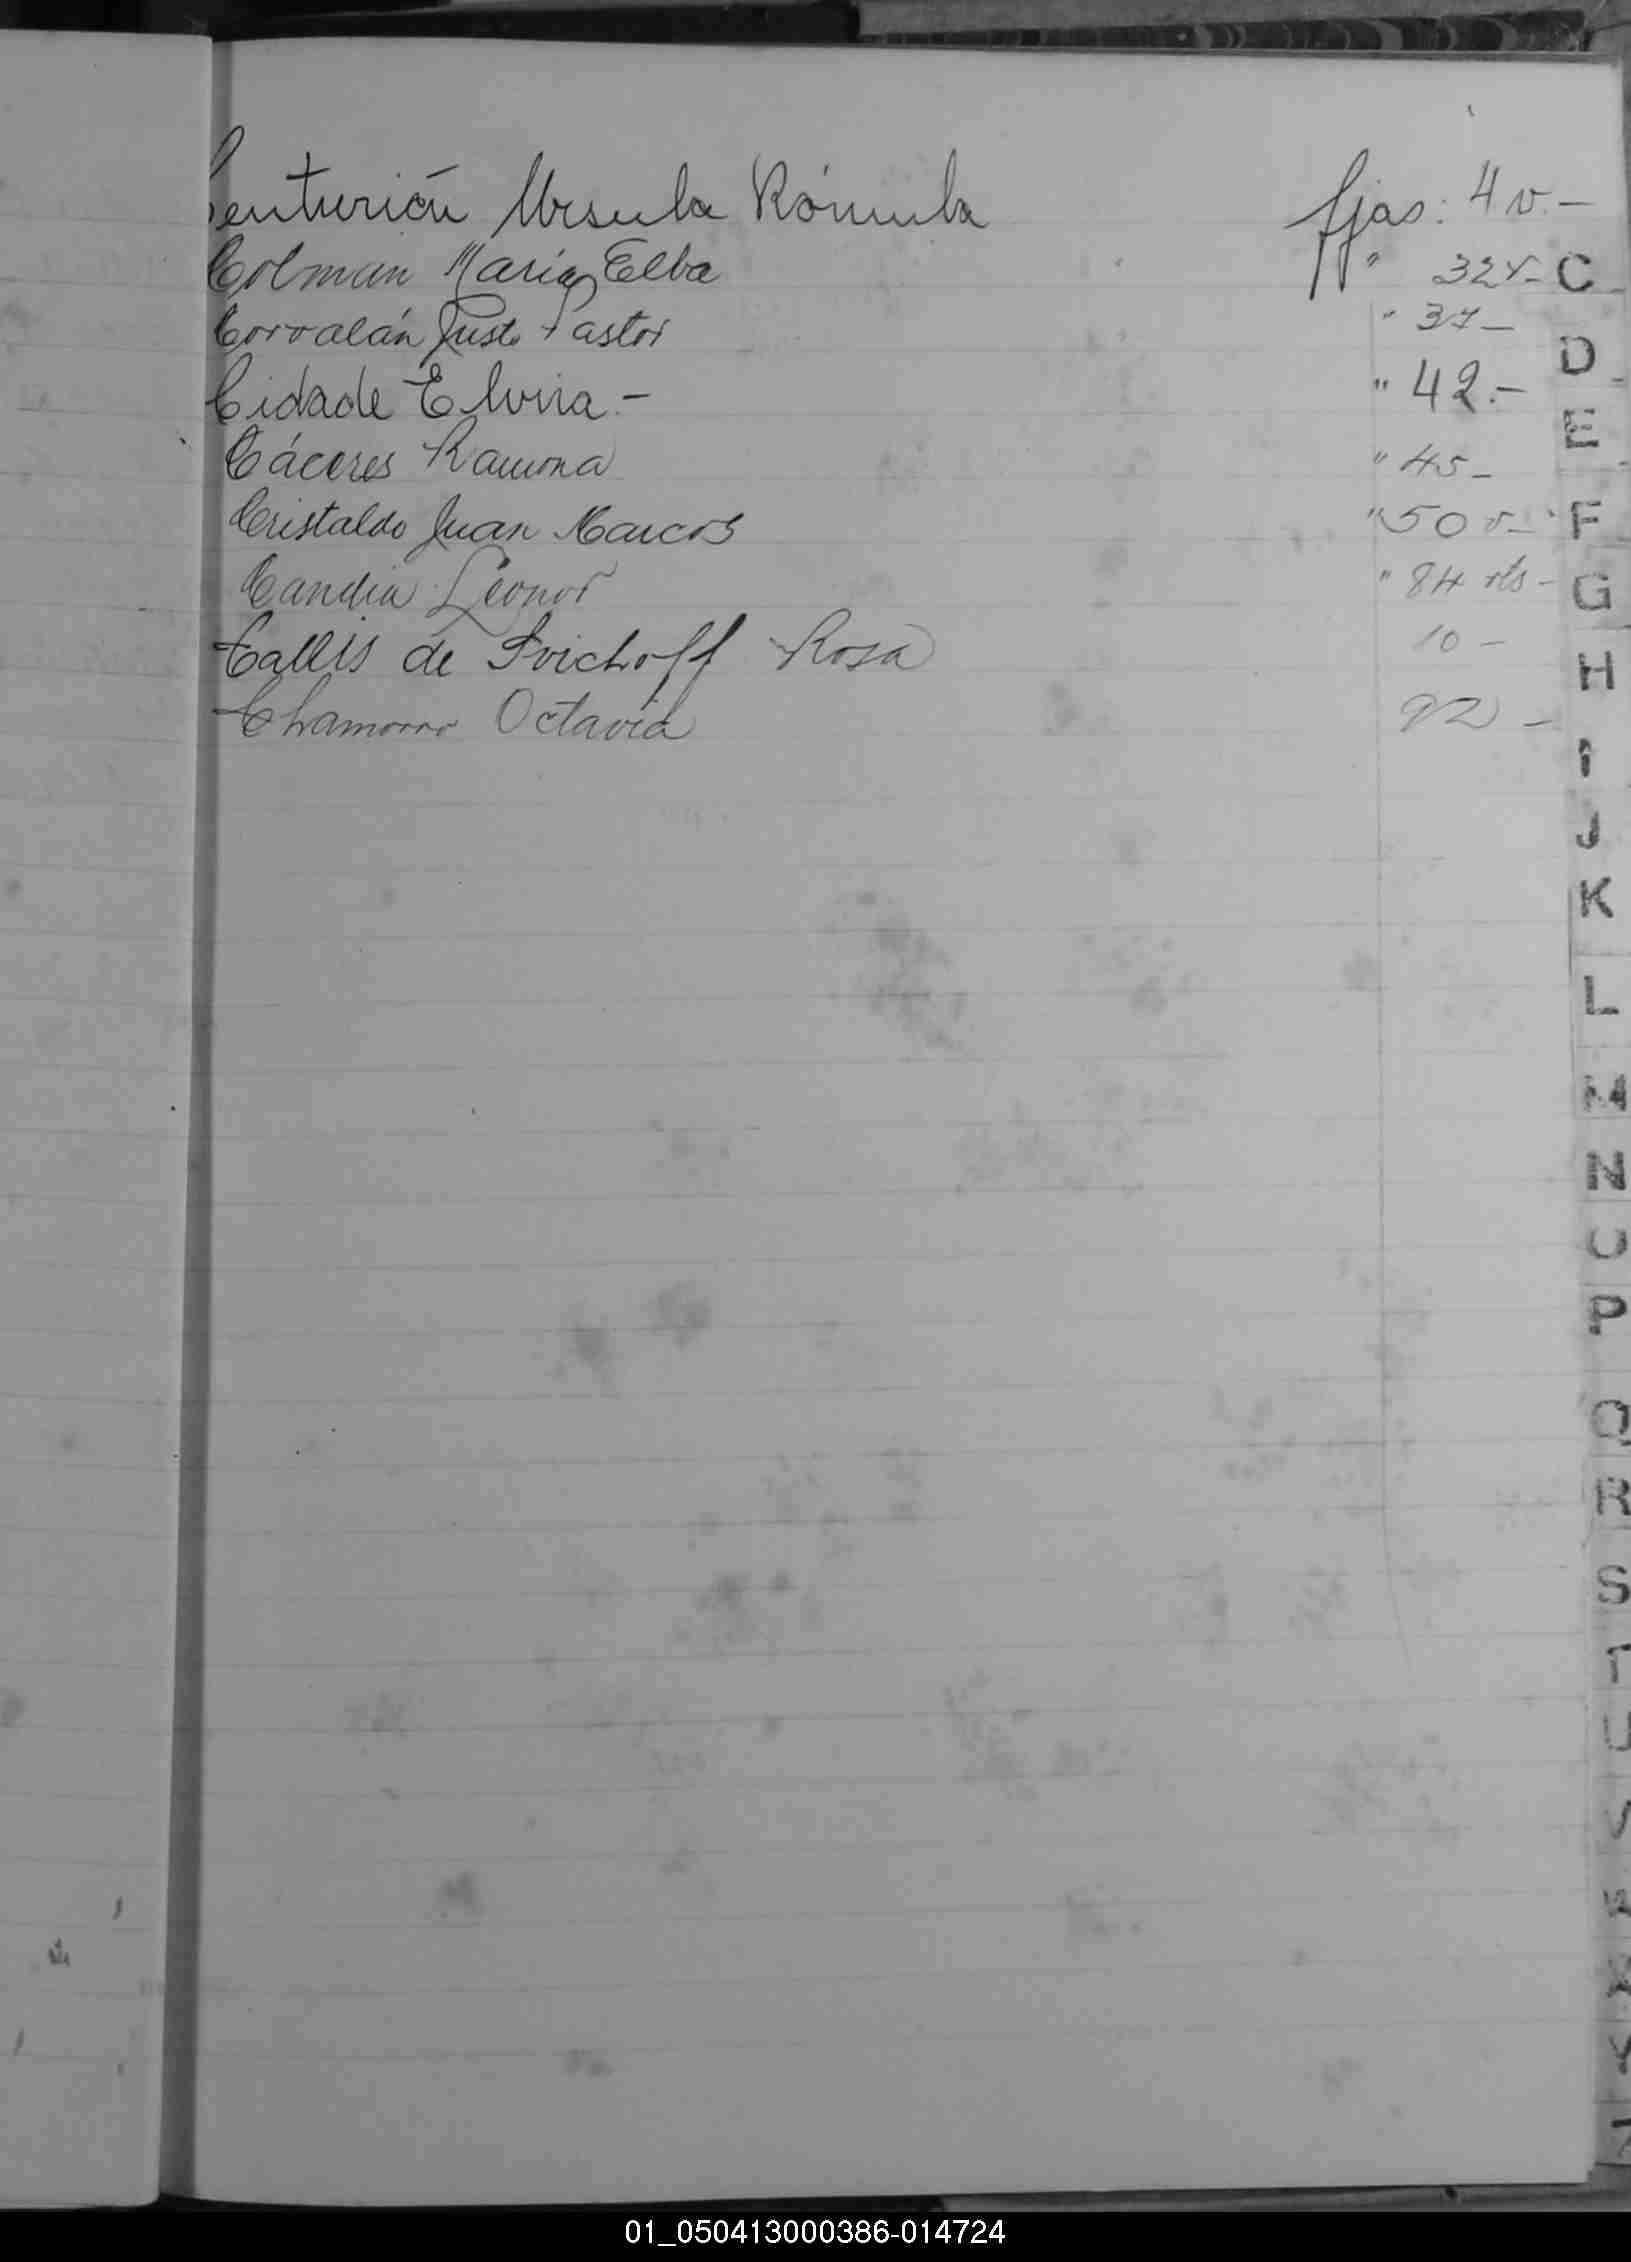 Centurión Ursula Rómula fjas: 4 v.-
Colman María Elba " 32 v-
Corvalán Justo Pastor " 37-
Cidade Elvira.- " 42.-
Cáceres Ramona " 45-
Cristaldo Juan Marcos " 50 v-
Candia Leonor " 84 -
Callis de Rosa 10 -
Chamorro Octavia 92 -
C
D
E
F
G
H
I
J
K
L
M
N
O
P
Q
R
S
T
U
V
X
Y
Z
01_050413000386-014724